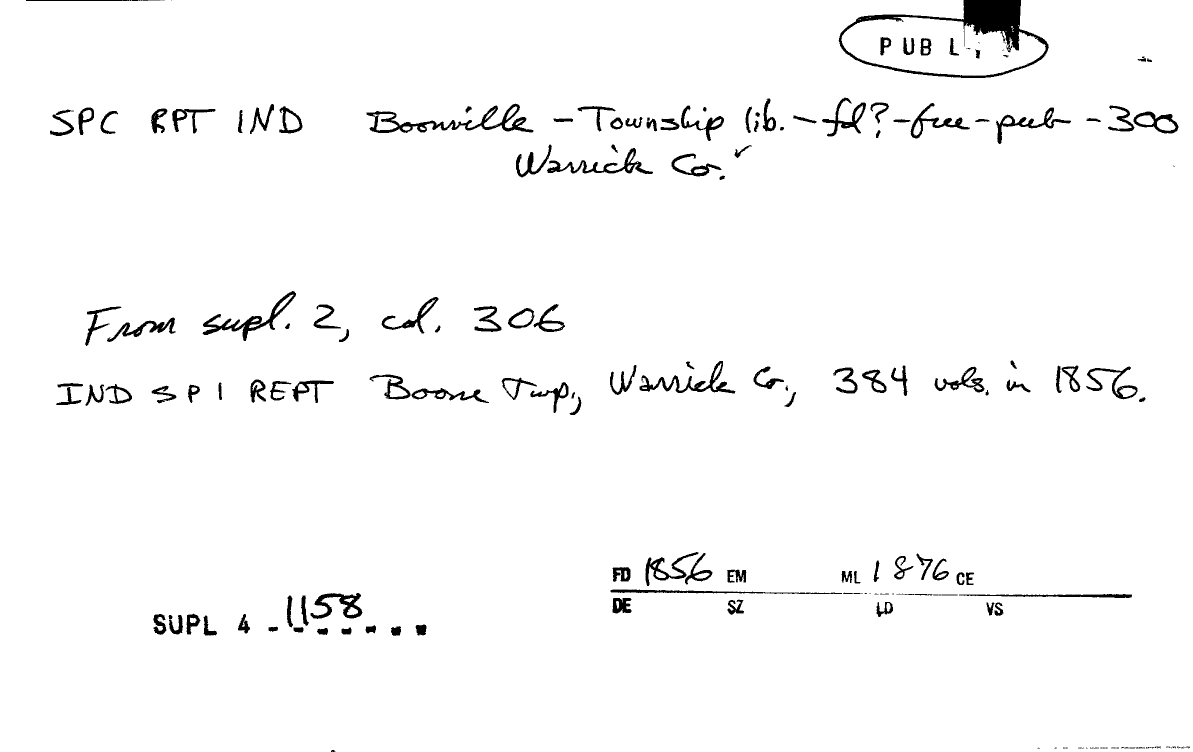 PUBL
SPC RPT IND Boonville - Township lib. - fd? - free - pub - 300
Warrick Co. ✓
From supl. 2, col. 306
IND SPI REPT Boone Twp., Warrick Co., 384 vols. in 1856.
FD 1856 EM ML 1876 CE
DE SZ LD VS
SUPL 4 - 1158